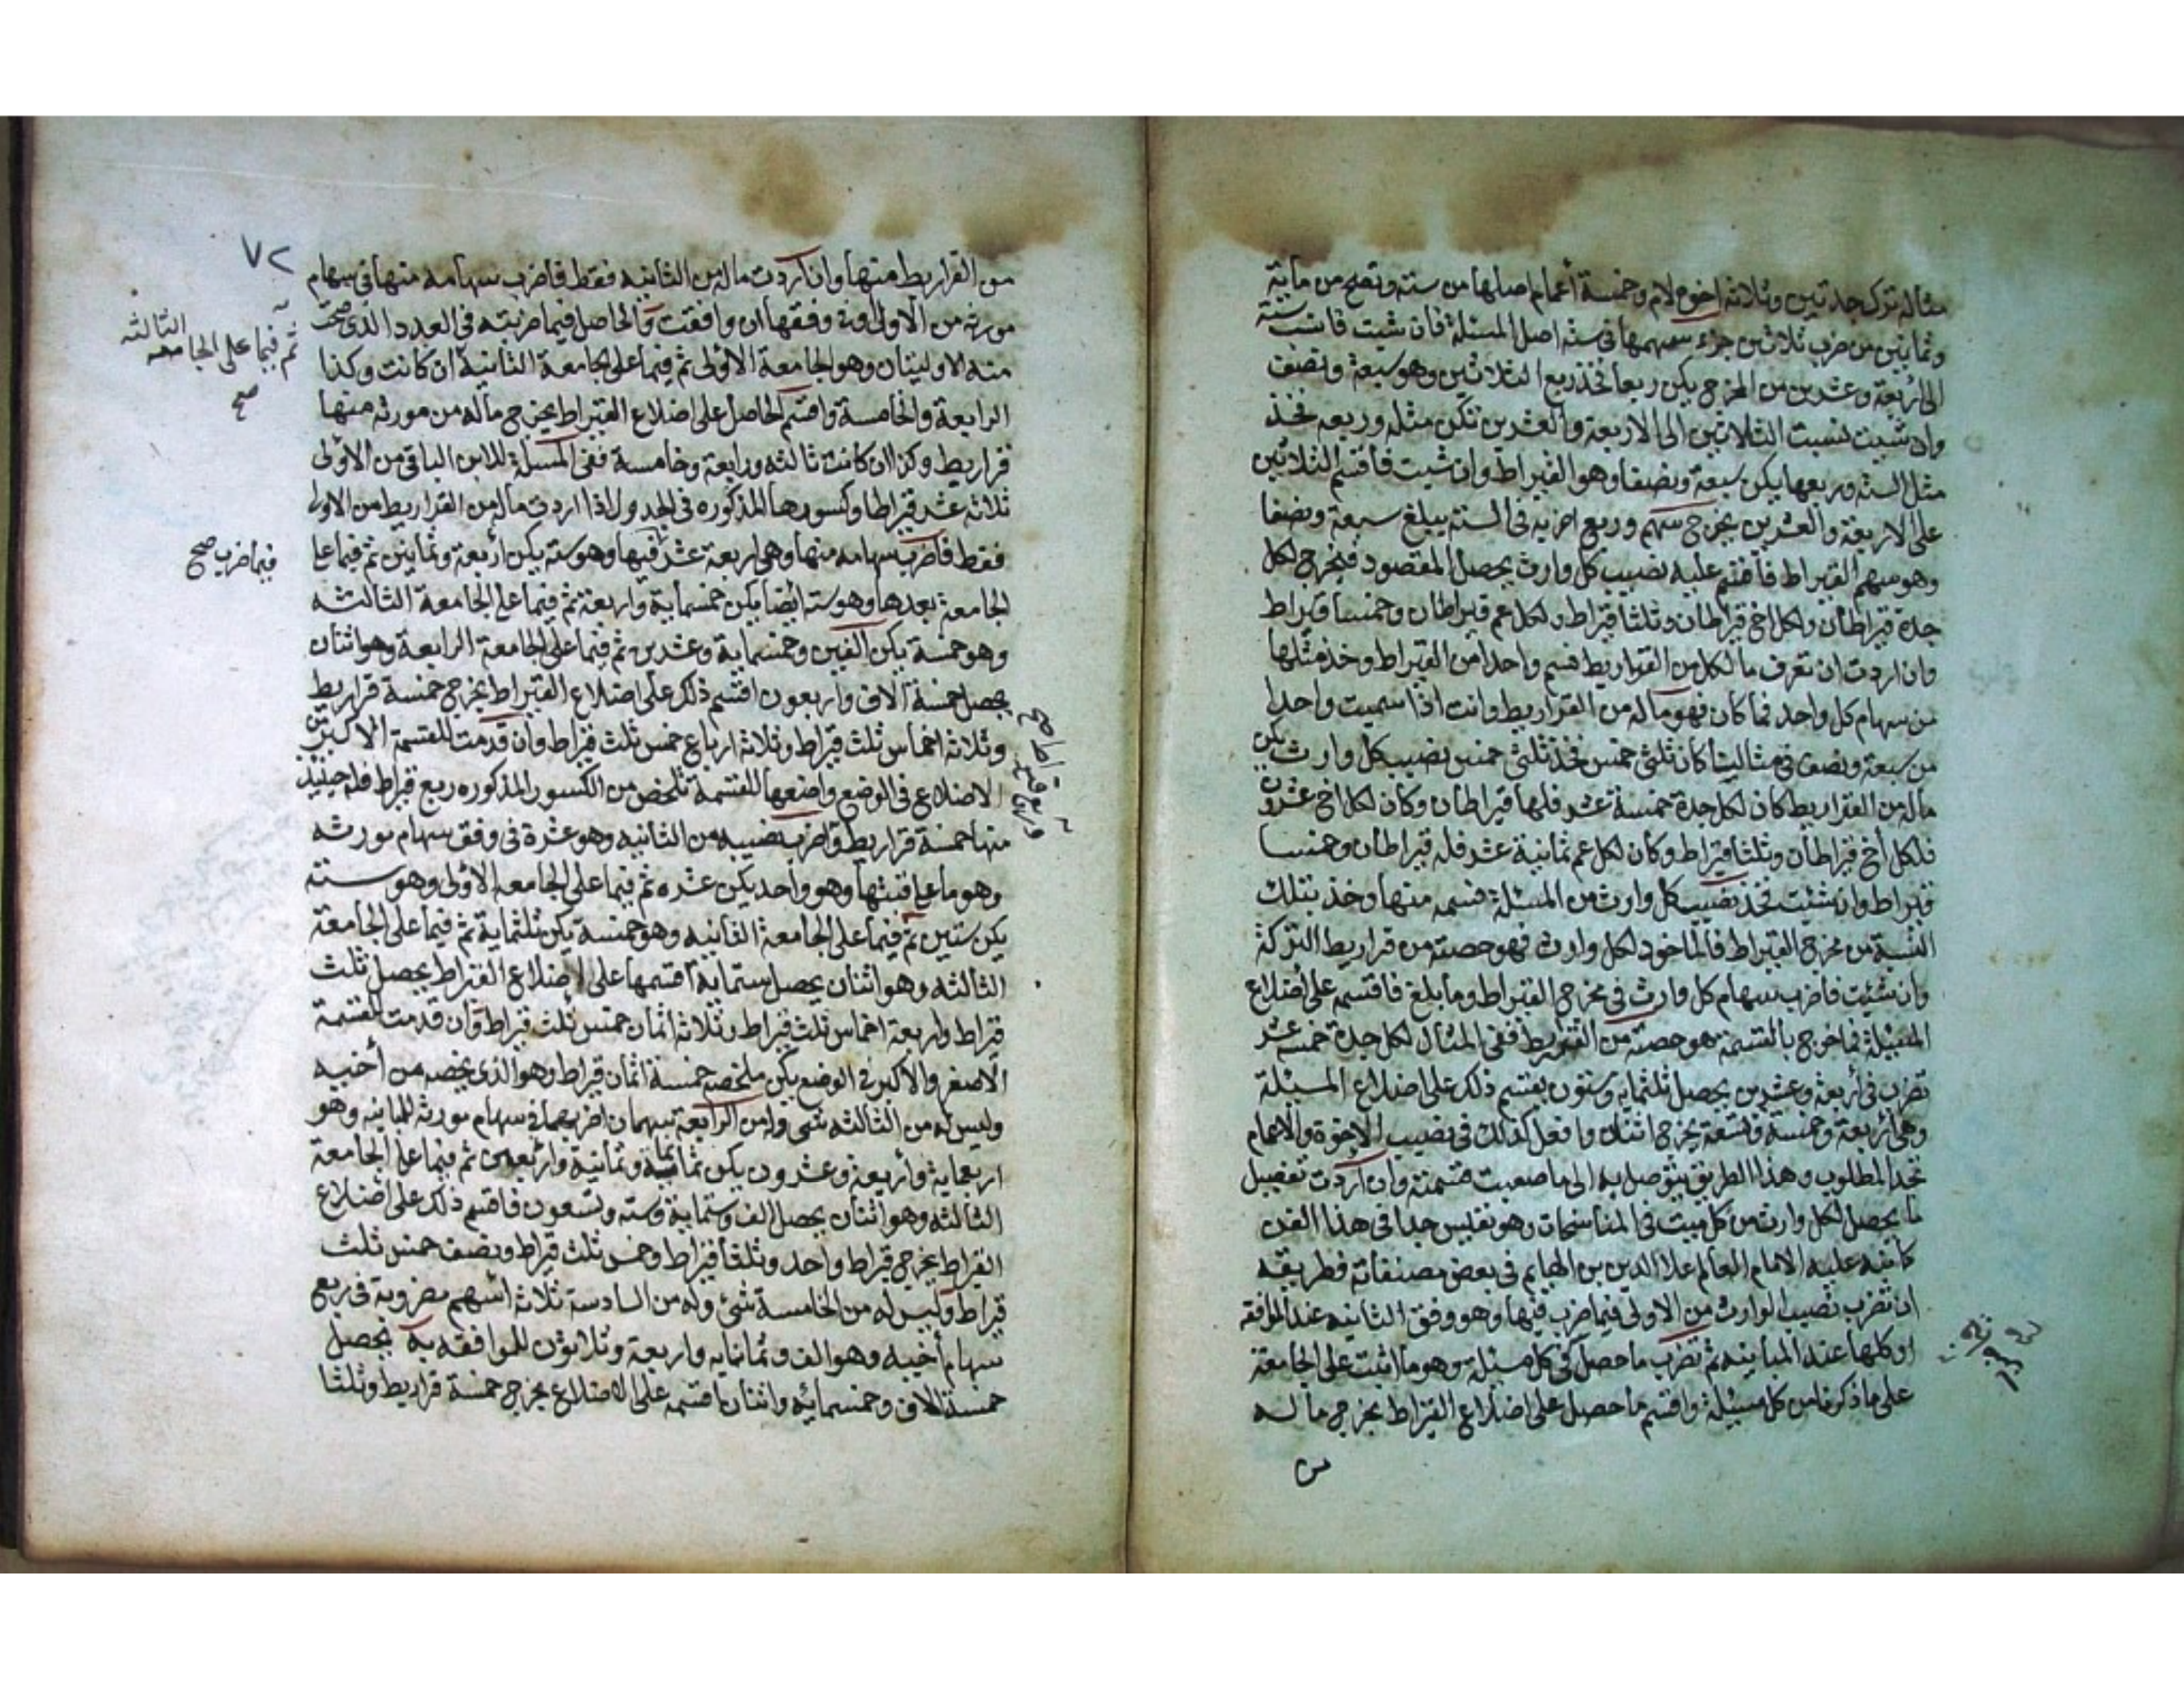 مثاله ترك جدتين وثلاثة اخوة لام وخمسة أعمام اصلها من ستة وتصح من ماية
وثمانين من ضرب ثلاثين جزء سهمها في ستة اصل المسئلة فان شيت فانسب ستة
الى أربعة وعشرين من المخرج يكن ربعا فخذ ربع الثلاثين وهو سبعة ونصف
وان شيت نسبت الثلاثين الى الاربعة والعشرين تكن مثله وربعه فخذ
مثل الستة وربعها يكن سبعة ونصفا وهو القيراط وان شيت فاقسم الثلاثين
على الاربعة والعشرين يخرج سهم وربع اضربه في الستة يبلغ سبعة ونصفا
وهو سهم القيراط فاقسم عليه نصيب كل وارث يحصل المقصود فيخرج لكل
جدة قيراطان ولكل اخ قيراطان وثلثا قيراط ولكل عم قيراطان وخمسا قيراط
وان اردت ان تعرف ما لكل من القراريط فسم واحدا من القيراط وخذ مثلها
من سهام كل واحد فما كان فهو ماله من القراريط وانت اذا سميت واحدا
من سبعة ونصف في مثالنا كان ثلثي خمس فخذ ثلثي خمس نصيب كل وارث يكن
ماله من القراريط كان لكل جدة خمسة عشر فلها قيراطان وكان لكل اخ عشرون
فلكل أخ قيراطان وثلثا قيراط وكان لكل عم ثمانية عشر فله قيراطان وخمسا
قيراط وان شئت فخذ نصيب كل وارث من المسئلة فسمه منها وخذ بتلك
النسبة من مخرج القيراط فالماخود لكل وارث فهو حصته من قراريط التركة
وان شئت فاضرب سهام كل وارث في مخرج القيراط وما بلغ فاقسم على أضلاع
المسئلة فما خرج بالقسمة هو حصته من القراريط ففي المثال لكل جدة خمسة عشر
تضرب في أربعة وعشرين يحصل ثلثماية وستون يقسم ذلك على اضلاع المسئلة
وهي أربعة وخمسة وتسعة يخرج اثنان وافعل كذلك في نصيب الاخوة والاعمام
تجد المطلوب وهذا الطريق يتوصل به الى ما صعبت قسمته وان أردت تفصيل
ما يحصل لكل وارث من كل ميت في المناسخات وهو نفيس جدا في هذا الفن
كما نبه عليه الامام العالم علا الدين بن الهايم في بعض مصنفاته وطريقه
ان تضرب نصيب الوارث من الاولى فيما ضرب فيها وهو وفق الثانيه عند الموافقه
او كلها عند المباينه ثم تضرب ما حصل في كل مسئلة وهو ما اثبت على الجامعة
على ما ذكرنا من كل مسئلة واقسم ما حصل على اضلاع القيراط يخرج ما لـه
من
٧٢
من القراريط منها وان أردت ماله من الثانيه فقط فاضرب سهامه منها في سهام
مورثه من الأولى او في وفقها ان وافقت والحاصل فيما ضربته في العدد الذي صحت
منه الاوليتان وهو الجامعة الاولى ثم فيما على الجامعة الثانية ان كانت وكذا
ثم فيما على الجامعه الثالثه
صح
الرابعة والخامسة واقسم الحاصل على اضلاع القيراط يخرج ماله من مورثه منها
قراريط وكذا ان كانت ثالثه ورابعة وخامسة ففي المسئلة للابن الباقي من الأولى
ثلاثة عشر قيراطا وكسورها المذكوره في الجدول اذا اردت ماله من القراريط من الاولى
فقط فاضرب سهامه منها وهي اربعة عشر فيها وهو ستة يكن أربعة وثمانين ثم فيما على
فيما ضرب صح
الجامعة بعدها وهو سته ايضا يكن خمسماية واربعة ثم فيما على الجامعة الثالثه
وهو خمسة يكن الفين وخمسماية وعشرين ثم فيما على الجامعة الرابعة وهو اثنان
يحصل خمسة آلاف واربعون اقسم ذلك على اضلاع القيراط يخرج خمسة قراريط
وثلاثة اخماس ثلث قيراط وثلاثة ارباع خمس ثلث قيراط وان قدمت للقسمة الاكبرين
الاضلاع في الوضع واضعها للقسمة تلخص من الكسور المذكوره ربع قيراط فله حينيذ
منها خمسة قراريط واضرب نصيبه من الثانيه وهو عشرة في وفق سهام مورثه
وربع قيراط صح
وهو ما على قنتها وهو واحد يكن عشره ثم فيما على الجامعه الأولى وهو ستة
يكن ستين ثم فيما على الجامعة الثانيه وهو خمسة يكن ثلثماية ثم فيما على الجامعة
الثالثه وهو اثنان يحصل ستماية اقسمها على الاضلاع القيراط يحصل ثلث
قيراط واربعة اخماس ثلث قيراط وثلاثة اثمان خمس ثلث قيراط وان قدمت للقسمة
الاصغر والأكبر في الوضع يكن ملخصه خمسة اثمان قيراط وهو الذي يخصه من أخيه
وليس له من الثالثه شي وله من الرابعة سهمان اضربهما في سهام مورثه للمباينه وهو
اربعماية وأربعة وعشرون يكن ثمانماية وثمانية واربعين ثم فيما على الجامعة
الثالثه وهو اثنان يحصل الف وستماية وسته وتسعون فاقسم ذلك على اضلاع
القيراط يخرج قيراط واحد وثلثا قيراط وخمس ثلث قيراط ونصف خمس ثلث
قيراط وليس له من الخامسة شئ وله من السادسة ثلاثة اسهم مضروبة في ربع
سهام أخيه وهو الف وثمانمايه واربعة وثلاثون للموافقه به يحصل
خمسة الاف وخمسمائه واثنان اقسمه على الاضلاع يخرج خمسة قراريط وثلثا